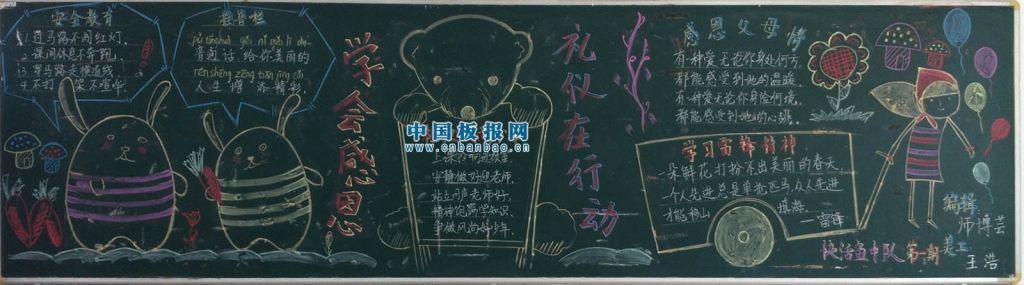 安全教育
1.过马路不闯红灯,
2.课间休息不奔跑,
3.穿马路走横道线
4.不打 来不喧哗.
pǔ tōng huà gěi nǐ měi lì de
普通话 给你美丽的
rén shēng zēng tiān jīng cǎi
人生 增 添精彩.
学会感恩
中国板报网
www.cnbanbao.cn
安静做好迎老师.
站立问候老师好.
精神饱满学知识
争做风尚好少年.
礼仪在行动
感恩父母情
有一种爱无论你身处何方,
都能感受到她的温暖
有一种爱无论你身险何境,
都能感受到她的心跳.
学习雷锋精神
一朵鲜花打扮不出美丽的春天,
一个人先进总是单枪匹马,众人先进
才能移山 填海.
——雷锋
第一期
编辑
师博芸
美工
王浩